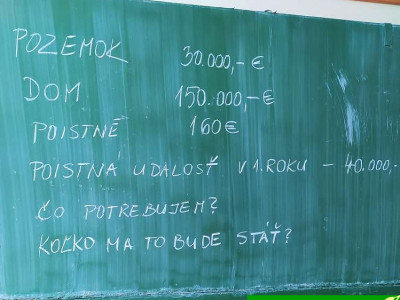 POZEMOK 30.000,- €
DOM 150.000,- €
POISTNÉ 160 €
POISTNÁ UDALOSŤ V 1. ROKU - 40.000,-
ČO POTREBUJEM?
KOĽKO MA TO BUDE STÁŤ?